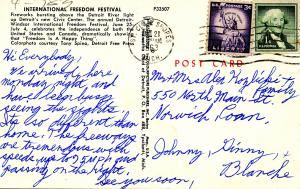 INTERNATIONAL FREEDOM FESTIVAL
Fireworks bursting over the Detroit River light
up Detroit's new Civic Center. The annual Detroit-
Windsor International Freedom Festival, June 25-
July 4, celebrates the independence of both the
United States and Canada, dramatically showing
that "Freedom Is A Happy Thing".
Colorphoto courtesy Tony Spina, Detroit Free Press
P32507
POST CARD
Hi Everybody,
We arrived here
Monday night and
have been busy
seeing the sights.
It's so different than
home. The freeways
are tremendous with
speeds up to and
passing on the right.
See you soon,
Johnny, Ginny, +
Blanche
Mr + Mrs Alex
+ Family
550 North Main St.
Norwich Conn.